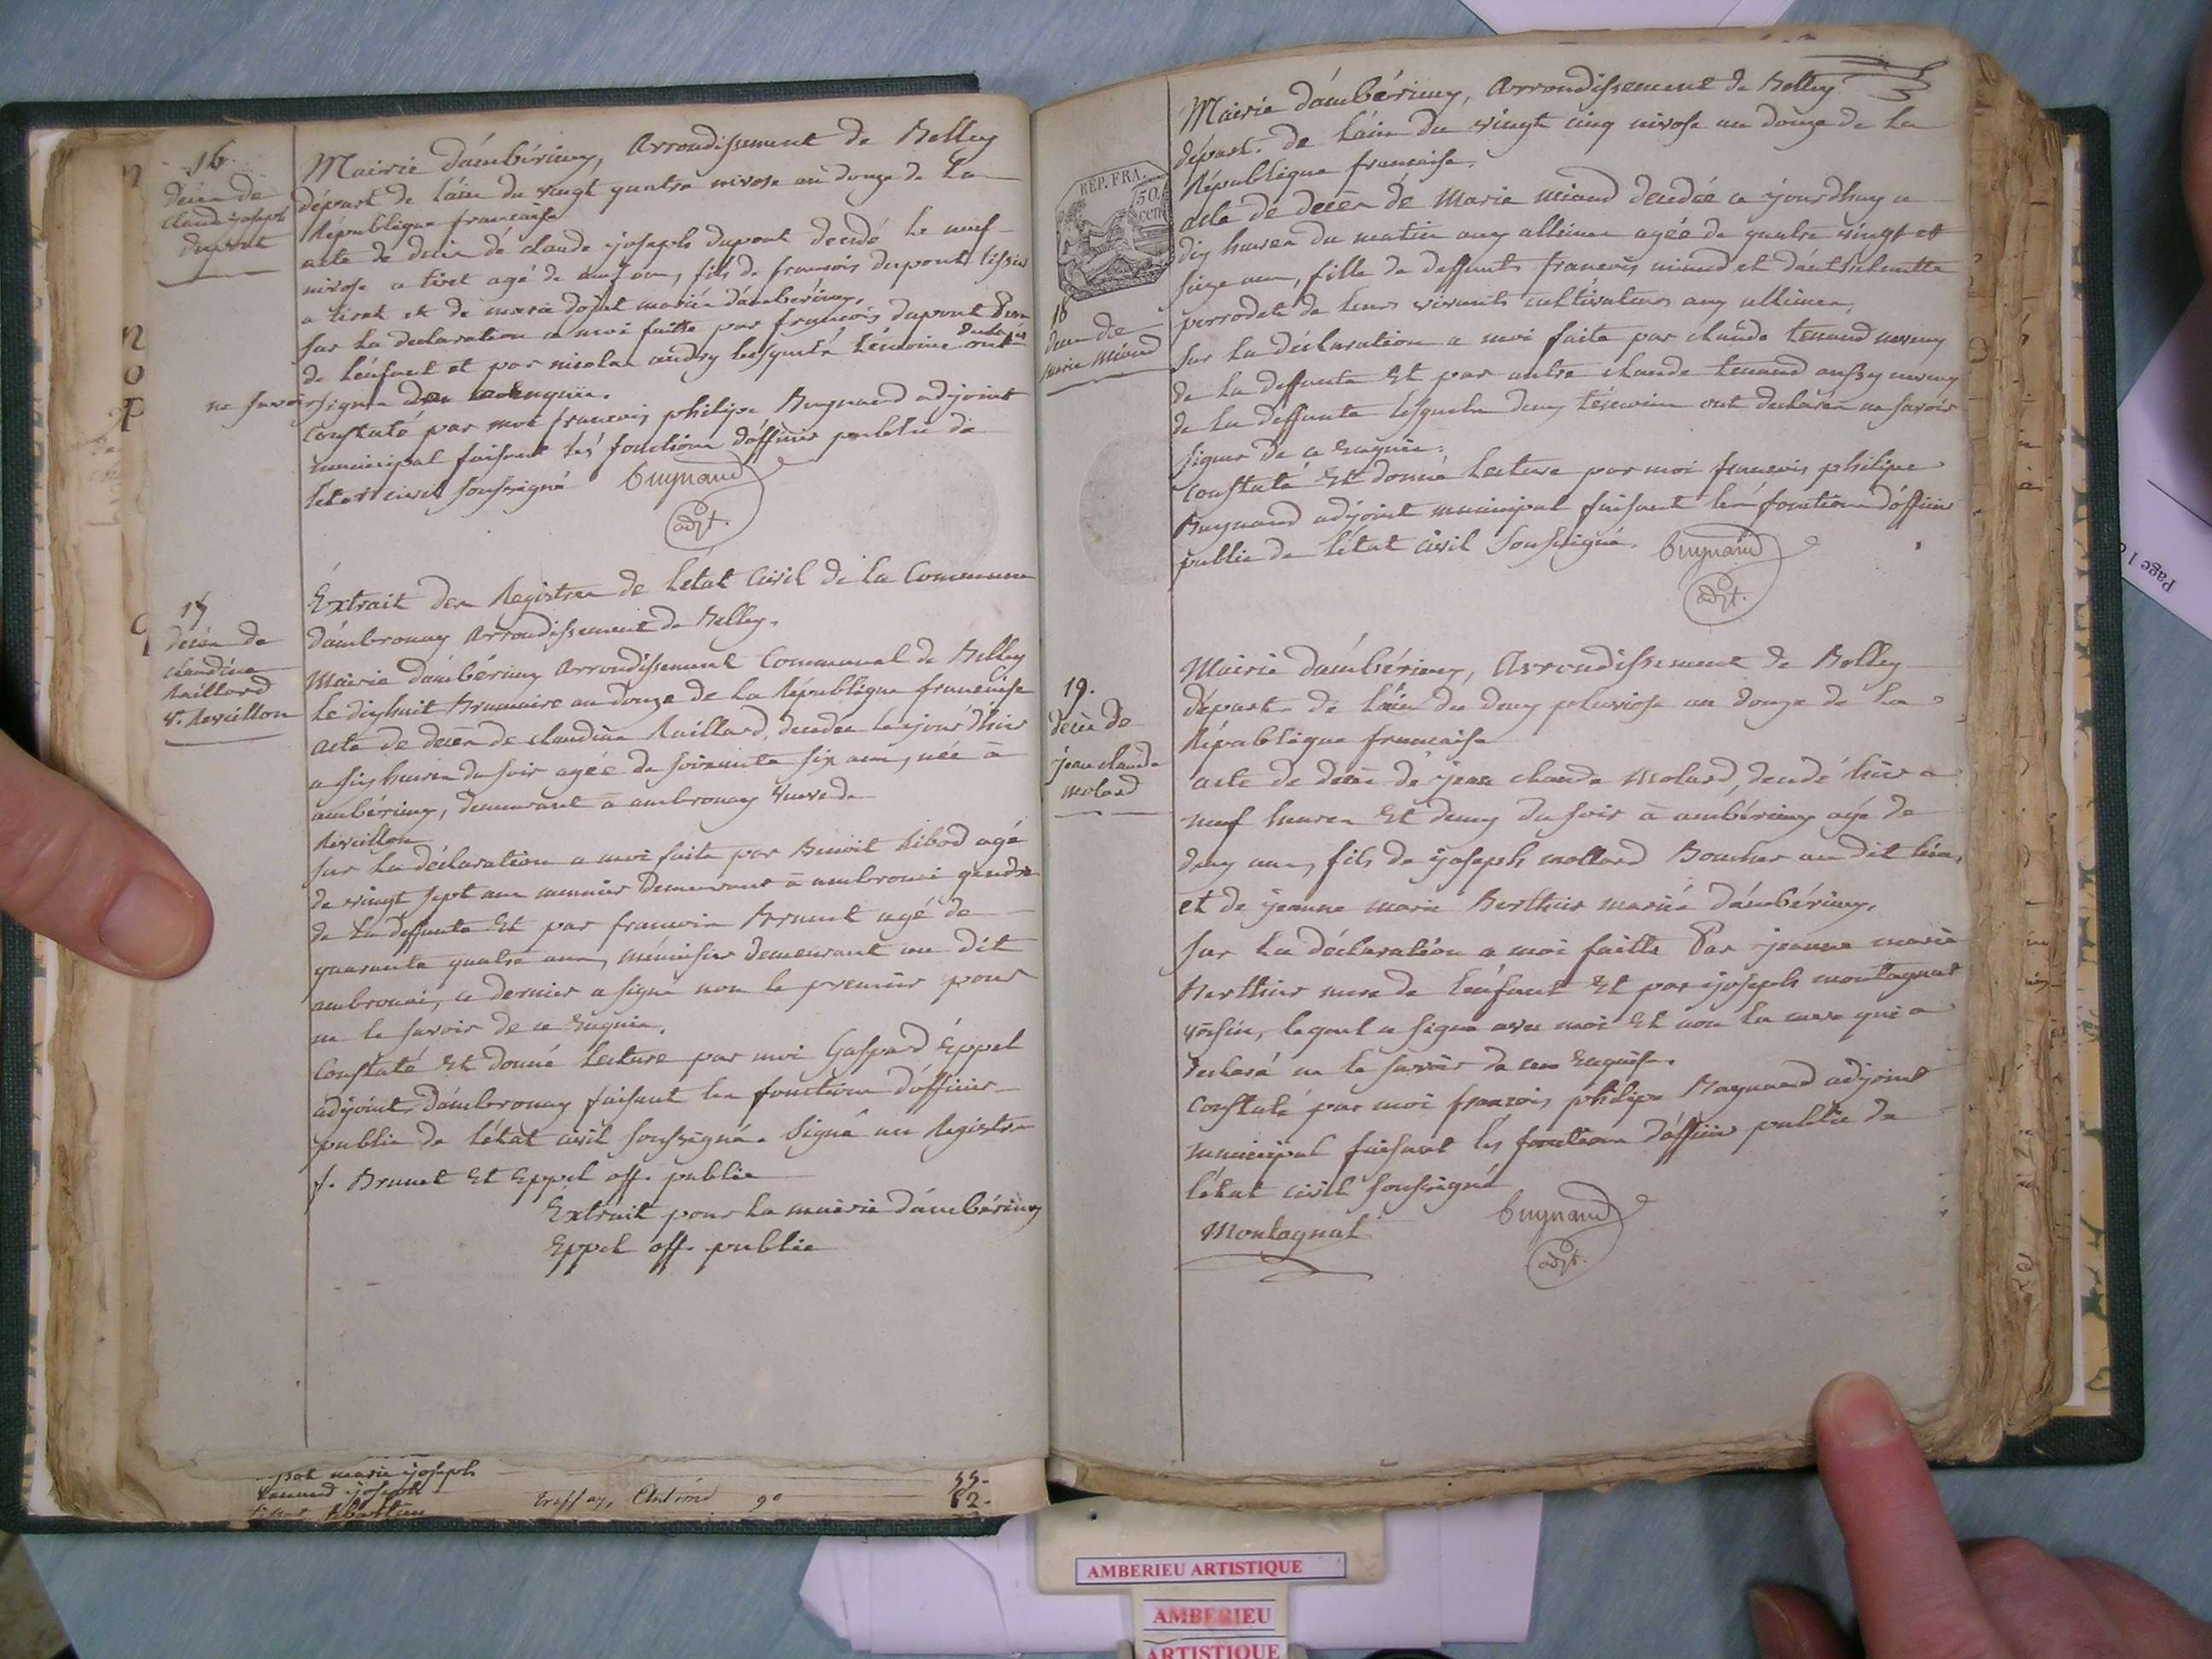 16
décès de
claude joseph
dupont
Mairie d'ambérieux, Arrondissement de Belley
départ de l'ain du vingt quatre nivose an douze de La
République française
acte de décès de claude joseph dupont décédé le neuf
nivose a tiret agé de neuf ans, fils de francois dupont tissier
a tiret et de marie dojat mariés d'ambérieux.
sur La declaration a moi faitte par françois dupont Pere
de l'enfant et par nicolas andry lesquels témoins ont
ne savoir signer de ce enquis.
Constaté par moi françois philipe Buynand adjoint
municipal faisant les fonctions d'officier public de
letat civil soussigné Buynand
adjt.
17
décès de
claudine
Raillard
ve. Reveillon
Extrait des Registres de l'état Civil de La Commune
d'ambronay Arrondissement de Belley.
Mairie d'ambérieux Arrondissement Communal de Belley
Le dixhuit Brumaire an douze de La République française
Acte de décès de claudine Raillard, décédée le jour d'hier
a six heures du soir agée de soixante six ans, née à
ambérieux, demeurant à ambronay veuve de
Reveillon
sur La déclaration a moi faite par Benoit Ribod agé
de vingt sept ans meunier demeurant à ambronai gendre
de La deffunte Et par francois Brunet agé de
quarante quatre ans, ménuisier demeurant au dit
ambronai, ce dernier a signé non le premier pour
ne le savoir de ce Enquis.
Constaté Et donné Lecture par moi Gaspard Eppel
adjoint d'ambronay faisant les fonctions d'officier
public de l'état civil soussigné. Signé au Registre
f. Brunet Et Eppel off. public
Extrait pour La mairie d'ambérieux
Eppel off. public
marie joseph
joseph
55.
Treffay, Antoine 90
52.
Mairie d'ambérieux, Arrondissement de Belley
départ. de l'ain du vingt cinq nivose an douze de La
République française.
RÉP. FRA.
50.
cent
18
deces de
marie miand
acte de décès de Marie miand décédée ce jourdhuy a
dix heures du matin aux allimes agée de quatre vingt et
seize ans, fille de deffunts françois miand et d'anthelmette
perrodet de leurs vivants cultivateurs aux allimes,
sur La déclaration a moi faite par claude tenand neveux
de La deffunte Et par autre claude tenand aussy neveux
de La deffunte lesquels deux témoins ont déclarés ne savoir
signer de ce enquis.
Constaté Et donné Lecture par moi françois philipe
Buynand adjoint municipal faisant les fonctions d'officier
public de l'état civil soussigné. Buynand
adjt.
19.
décès de
jean claude
molard
Mairie d'ambérieux, Arrondissement de Belley
départ. de l'ain du deux pluviose an douze de La
République française
acte de décès de jean claude Molard, décédé hier a
neuf heures Et demy du soir à ambérieux agé de
deux ans, fils de joseph mollard Boucher au dit lieu,
et de jeanne marie Berthier mariés d'ambérieux.
sur La déclaration a moi faitte Par jeanne marie
Berthier mere de l'enfant Et par joseph montagnat
voisin, lequel a signé avec moi Et non La mere qui a
declaré ne le savoir de ce Enquise.
Constaté par moi françois philipe Buynand adjoint
municipal faisant les fonctions d'officier public de
l'état civil soussigné
Montagnat Buynand
adjt.
Page 1
AMBERIEU ARTISTIQUE
AMBERIEU
ARTISTIQUE